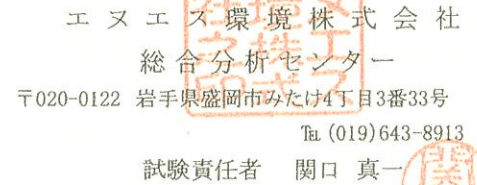 エヌエス環境株式会社
総合分析センター
〒020-0122 岩手県盛岡市みたけ4丁目3番33号
℡(019)643-8913
試験責任者 関口 真一